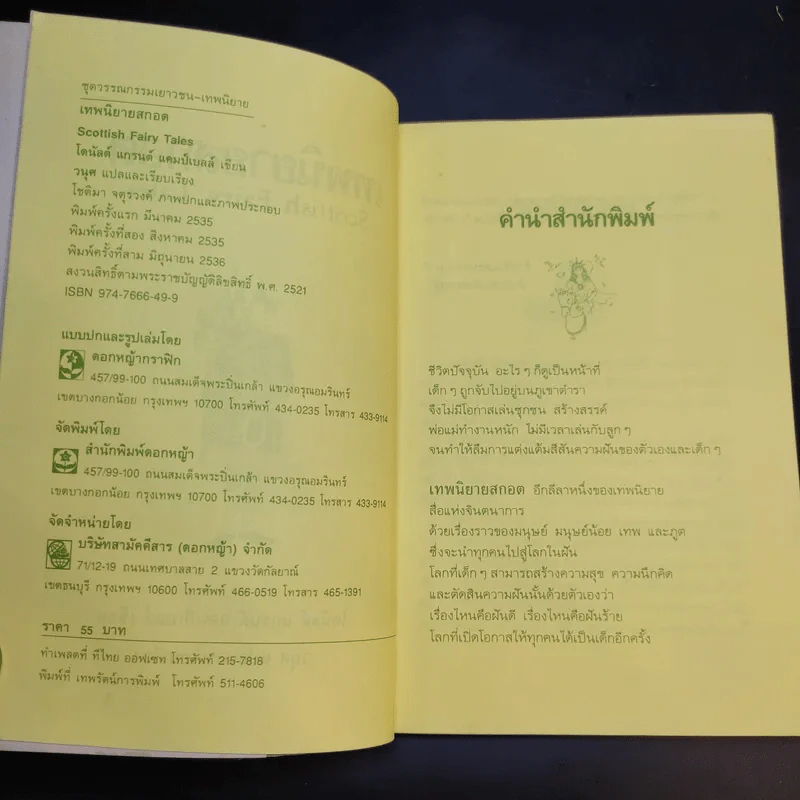 ชุดวรรณกรรมเยาวชน-เทพนิยาย
เทพนิยายสกอต
Scottish Fairy Tales
โดนัลด์ แกรนต์ แคมป์เบลล์ เขียน
วนุศ แปลและเรียบเรียง
โชติมา จตุรวงค์ ภาพปกและภาพประกอบ
พิมพ์ครั้งแรก มีนาคม 2535
พิมพ์ครั้งที่สอง สิงหาคม 2535
พิมพ์ครั้งที่สาม มิถุนายน 2536
สงวนสิทธิ์ตามพระราชบัญญัติลิขสิทธิ์ พ.ศ. 2521
ISBN 974-7666-49-9
แบบปกและรูปเล่มโดย
ดอกหญ้ากราฟิก
457/99-100 ถนนสมเด็จพระปิ่นเกล้า แขวงอรุณอมรินทร์
เขตบางกอกน้อย กรุงเทพฯ 10700 โทรศัพท์ 434-0235 โทรสาร 433-9114
จัดพิมพ์โดย
สำนักพิมพ์ดอกหญ้า
457/99-100 ถนนสมเด็จพระปิ่นเกล้า แขวงอรุณอมรินทร์
เขตบางกอกน้อย กรุงเทพฯ 10700 โทรศัพท์ 434-0235 โทรสาร 433-9114
จัดจำหน่ายโดย
บริษัทสามัคคีสาร (ดอกหญ้า) จำกัด
71/12-19 ถนนเทศบาลสาย 2 แขวงวัดกัลยาณ์
เขตธนบุรี กรุงเทพฯ 10600 โทรศัพท์ 466-0519 โทรสาร 465-1391
ราคา 55 บาท
ทำเพลตที่ ทีไทย ออฟเซท โทรศัพท์ 215-7818
พิมพ์ที่ เทพรัตน์การพิมพ์ โทรศัพท์ 511-4606
คำนำสำนักพิมพ์
ชีวิตปัจจุบัน อะไร ๆ ก็ดูเป็นหน้าที่
เด็ก ๆ ถูกจับไปอยู่บนภูเขาตำรา
จึงไม่มีโอกาสเล่นซุกซน สร้างสรรค์
พ่อแม่ทำงานหนัก ไม่มีเวลาเล่นกับลูก ๆ
จนทำให้ลืมการแต่งแต้มสีสันความฝันของตัวเองและเด็ก ๆ
เทพนิยายสกอต อีกลีลาหนึ่งของเทพนิยาย
สื่อแห่งจินตนาการ
ด้วยเรื่องราวของมนุษย์ มนุษย์น้อย เทพ และภูต
ซึ่งจะนำทุกคนไปสู่โลกในฝัน
โลกที่เด็ก ๆ สามารถสร้างความสุข ความนึกคิด
และตัดสินความฝันนั้นด้วยตัวเองว่า
เรื่องไหนคือฝันดี เรื่องไหนคือฝันร้าย
โลกที่เปิดโอกาสให้ทุกคนได้เป็นเด็กอีกครั้ง